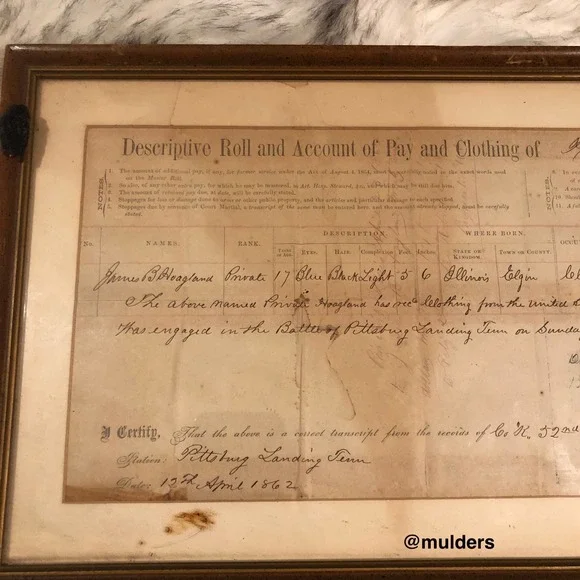 Descriptive Roll and Account of Pay and Clothing of
NOTES.
1. The amount of additional pay, if any, for former service under the Act of August 4, 1854, must be carefully noted in the same words used on the Muster Roll.
4. Stoppages for loss or damage done to arms or other public property, and the articles and particular damage to each specified.
5. Stoppages due by sentence of Court Martial, a transcript of the same must be
stated.
DESCRIPTION
WHERE BORN.
No.
NAMES.
RANK.
YEARS of AGE.
EYES.
HAIR.
Complexion
Feet
Inches.
STATE OR KINGDOM.
TOWN OR COUNTY.
OCCU
James B Hoagland Private 17 Blue Black Light 5 6 Illinois Elgin
The above named Private Hoagland has recd Clothing from the United
Was engaged in the Battle of Pittsburg Landing Tenn on Sunday
I Certify, That the above is a correct transcript from the records of Co "K", 52nd
Station: Pittsburg Landing Tenn
Date: 12th April 1862
@mulders